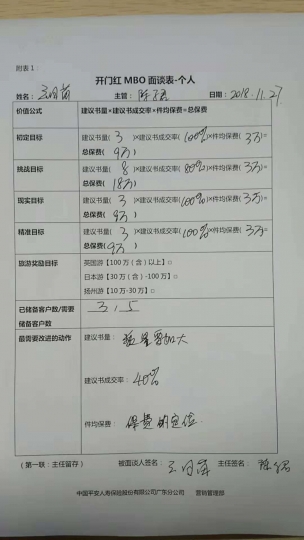 附表1:
开门红 MBO 面谈表-个人
姓名: 主管: 日期: 2018.11.27.
价值公式 建议书量×建议书成交率×件均保费=总保费
初定目标 建议书量( 3 )×建议书成交率(100%)×件均保费( 3万)=
总保费( 9万 )
挑战目标 建议书量( 8 )×建议书成交率( 80%)×件均保费( 3万)=
总保费( 18万 )
现实目标 建议书量( 3 )×建议书成交率(100%)×件均保费( 3万)=
总保费( 9万 )
精准目标 建议书量( 3 )×建议书成交率(100%)×件均保费( 3万)=
总保费( 9万 )
旅游奖励目标 英国游【100万(含)以上】□
日本游【30万(含)-100万】□
扬州游【10万-30万】□
已储备客户数/需要 3,5
储备客户数
最需要改进的动作 建议书量: 量要加大
建议书成交率: 40%
件均保费: 保费的定位
(第一联:主任留存) 被面谈人签名: 主任签名:
中国平安人寿保险股份有限公司广东分公司 营销管理部